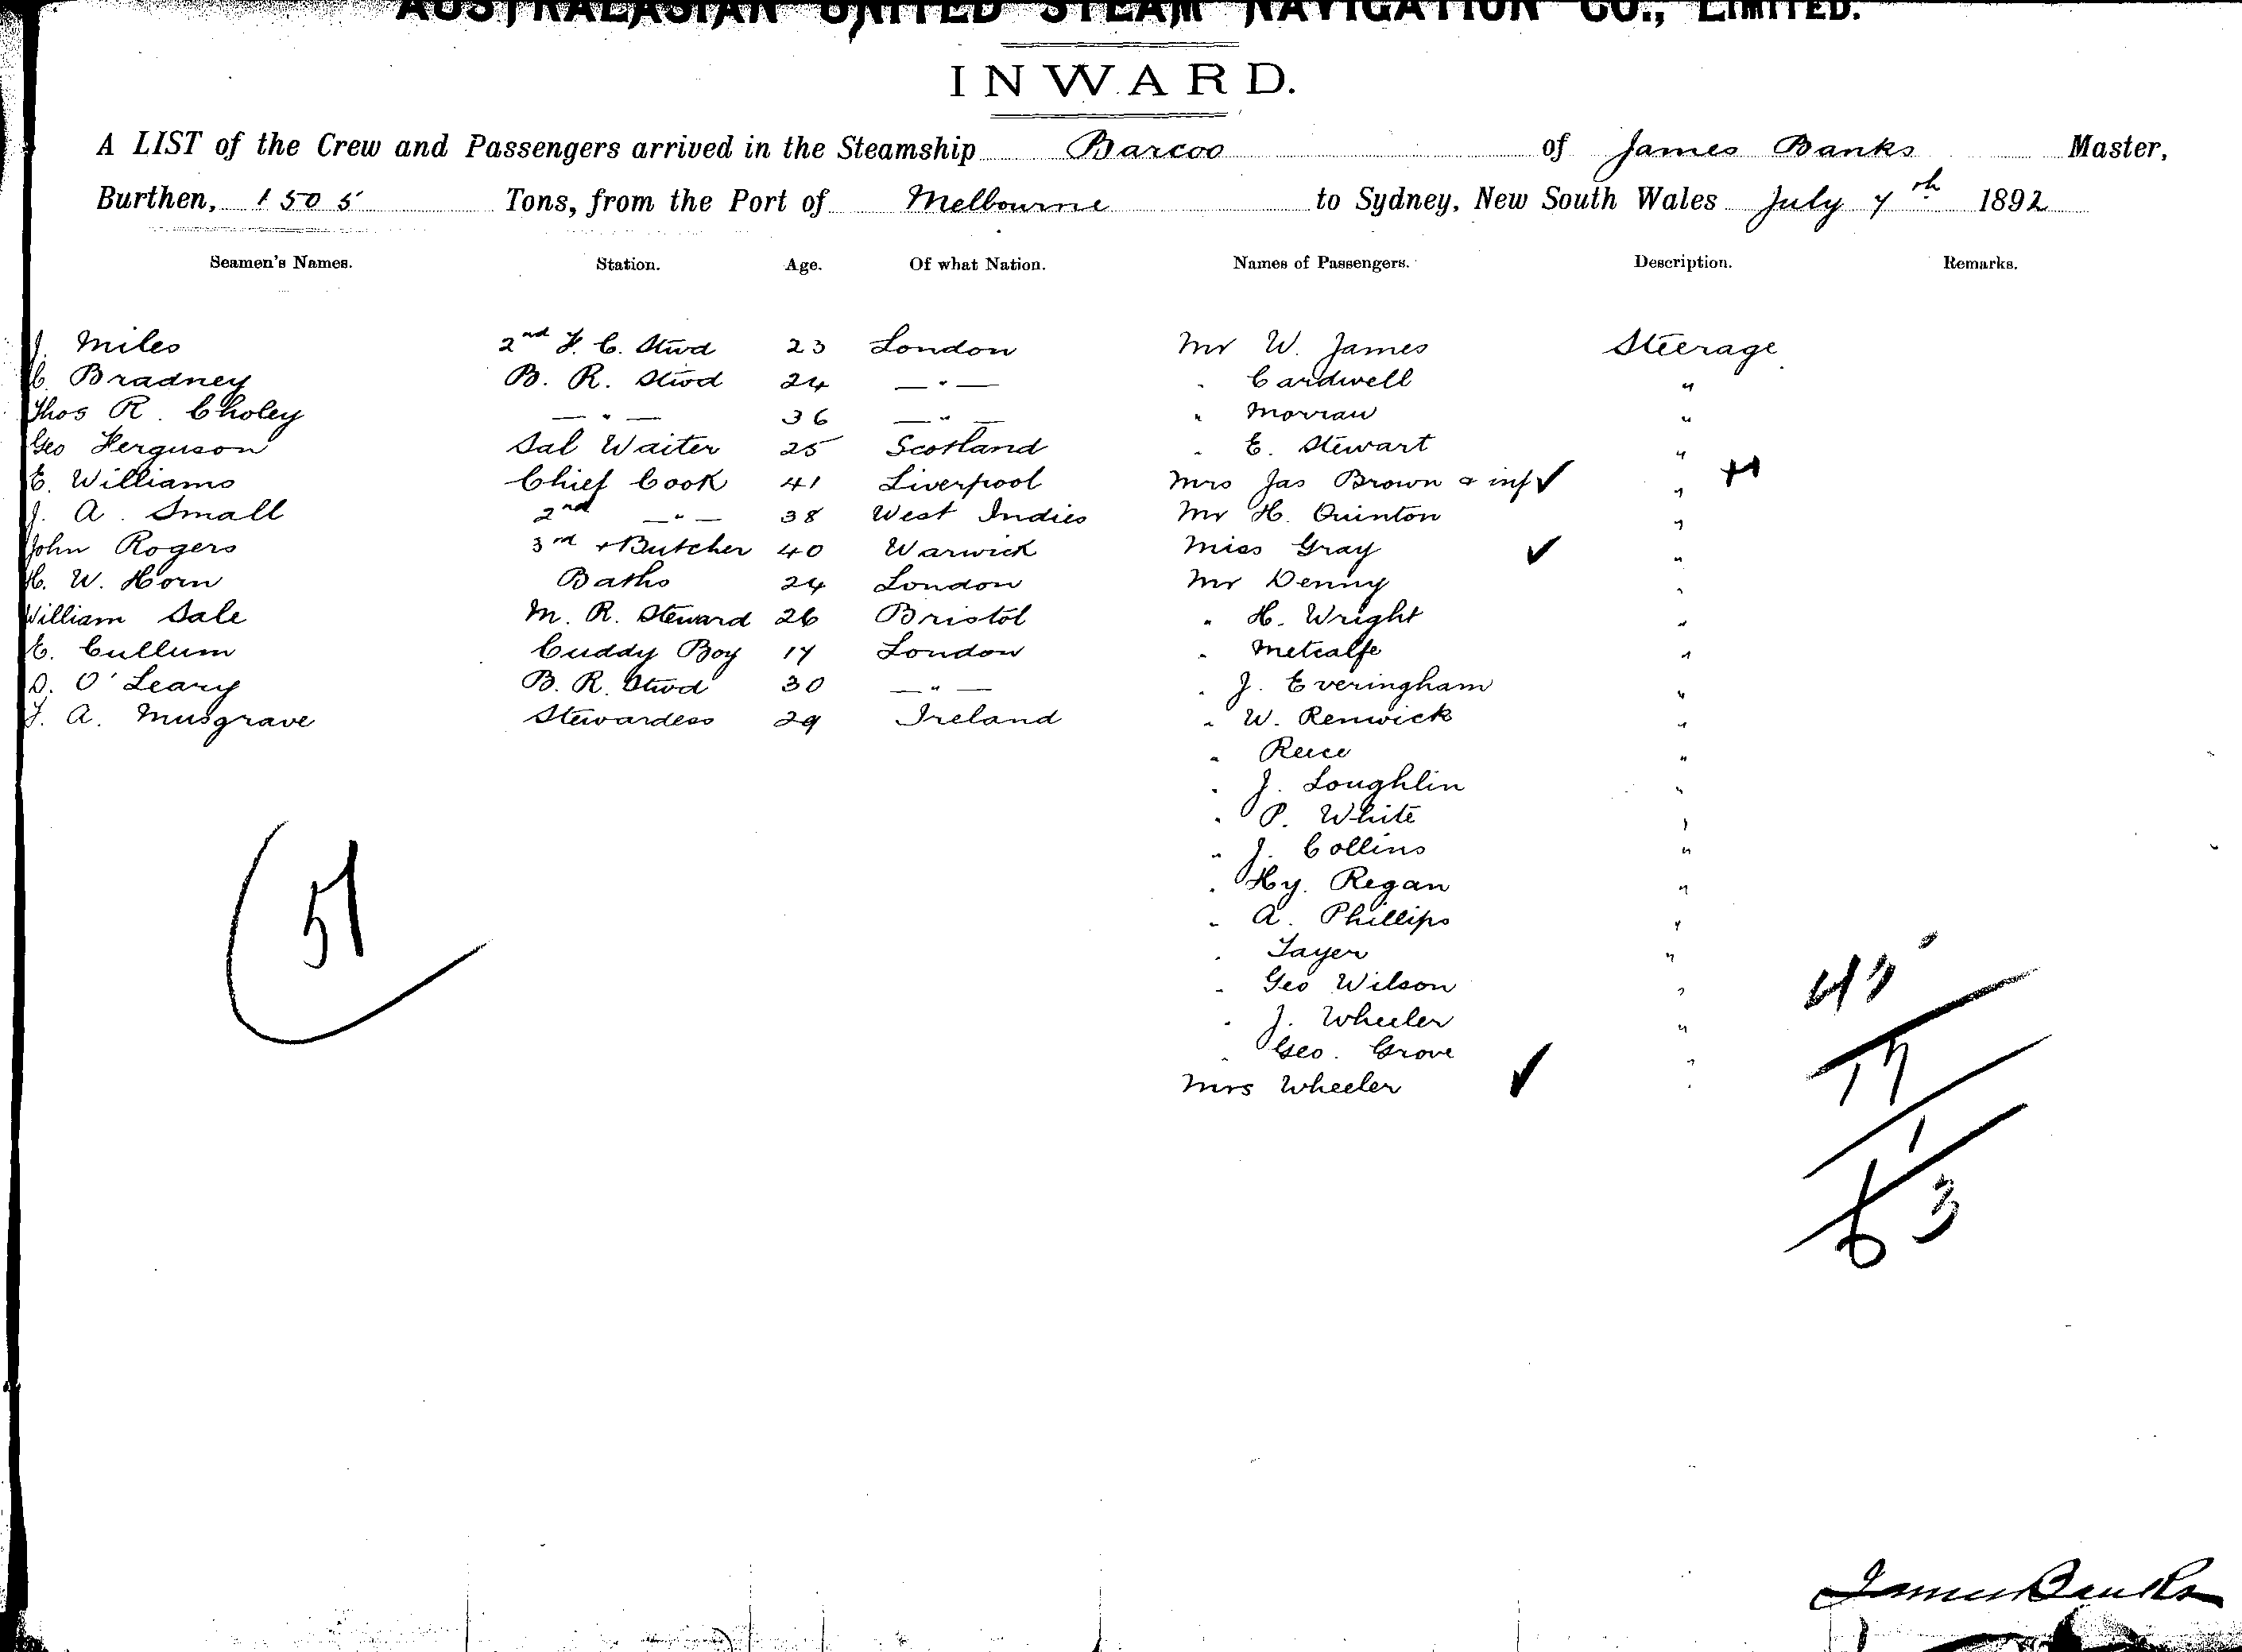 AUSTRALASIAN UNITED STEAM NAVIGATION CO., LIMITED.
INWARD.
A LIST of the Crew and Passengers arrived in the Steamship Barcoo of James Banks Master,
Burthen, 1505 Tons, from the Port of Melbourne to Sydney, New South Wales July 7th 1892
Seamen's Names. Station. Age. Of what Nation. Names of Passengers. Description. Remarks.
J. Miles 2nd F. C. Stwd 23 London Mr W. James Steerage
C. Bradney B. R. Stwd 24 — " — " Cardwell "
Thos R. Choley — " — 36 — " — " Morrau "
Geo Ferguson Sal Waiter 25 Scotland " E. Stewart "
E. Williams Chief Cook 41 Liverpool Mrs Jas Brown & inf ✓ "
J. A. Small 2nd — " — 38 West Indies Mr H. Quinton "
John Rogers 3rd + Butcher 40 Warwick Miss Gray ✓ "
H. W. Horn Baths 24 London Mr Denny "
William Sale M. R. Steward 26 Bristol " H. Wright "
E. Cullum Cuddy Boy 17 London " Metcalfe "
D. O'Leary B. R. Stwd 30 — " — " J. Everingham "
J. A. Musgrave Stewardess 29 Ireland " W. Renwick "
" Reece "
" J. Loughlin "
" P. White "
" J. Collins "
" Hy. Regan "
" A. Phillips "
" Tayer "
" Geo Wilson "
" J. Wheeler "
" Geo. Grove "
Mrs Wheeler ✓ "
51
45
17
1
63
James Banks